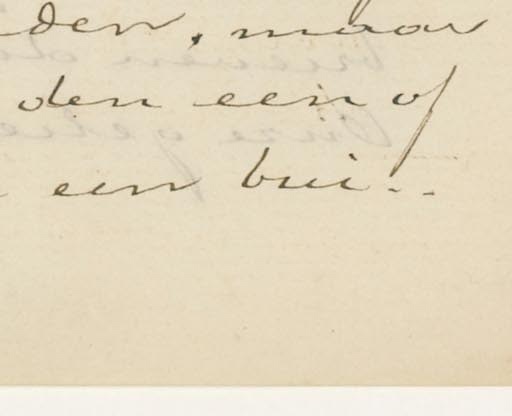 den, maar
den een of
een bui..